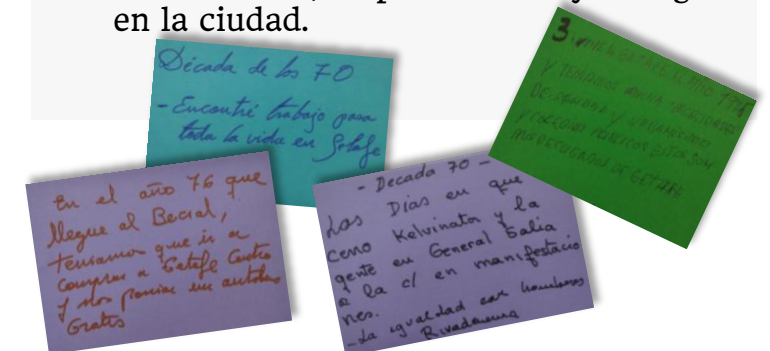 en la ciudad.
Década de los 70
- Encontré trabajo para
toda la vida en Getafe
3.
Y TENIAMOS
DE SANIDAD Y URBANISMO
Y COLEGIOS PUBLICOS ESTAS SON
DE GETAFE
En el año 76 que
llegue al Bercial,
teniamos que ir a
comprar a Getafe Centro
y nos ponian un autobus
Gratis
- Decada 70 -
Los Dias en que
cerro Kelvinator y la
gente en General Salia
a la c/ en manifestacio
nes.
- La igualdad
Rivadeneira